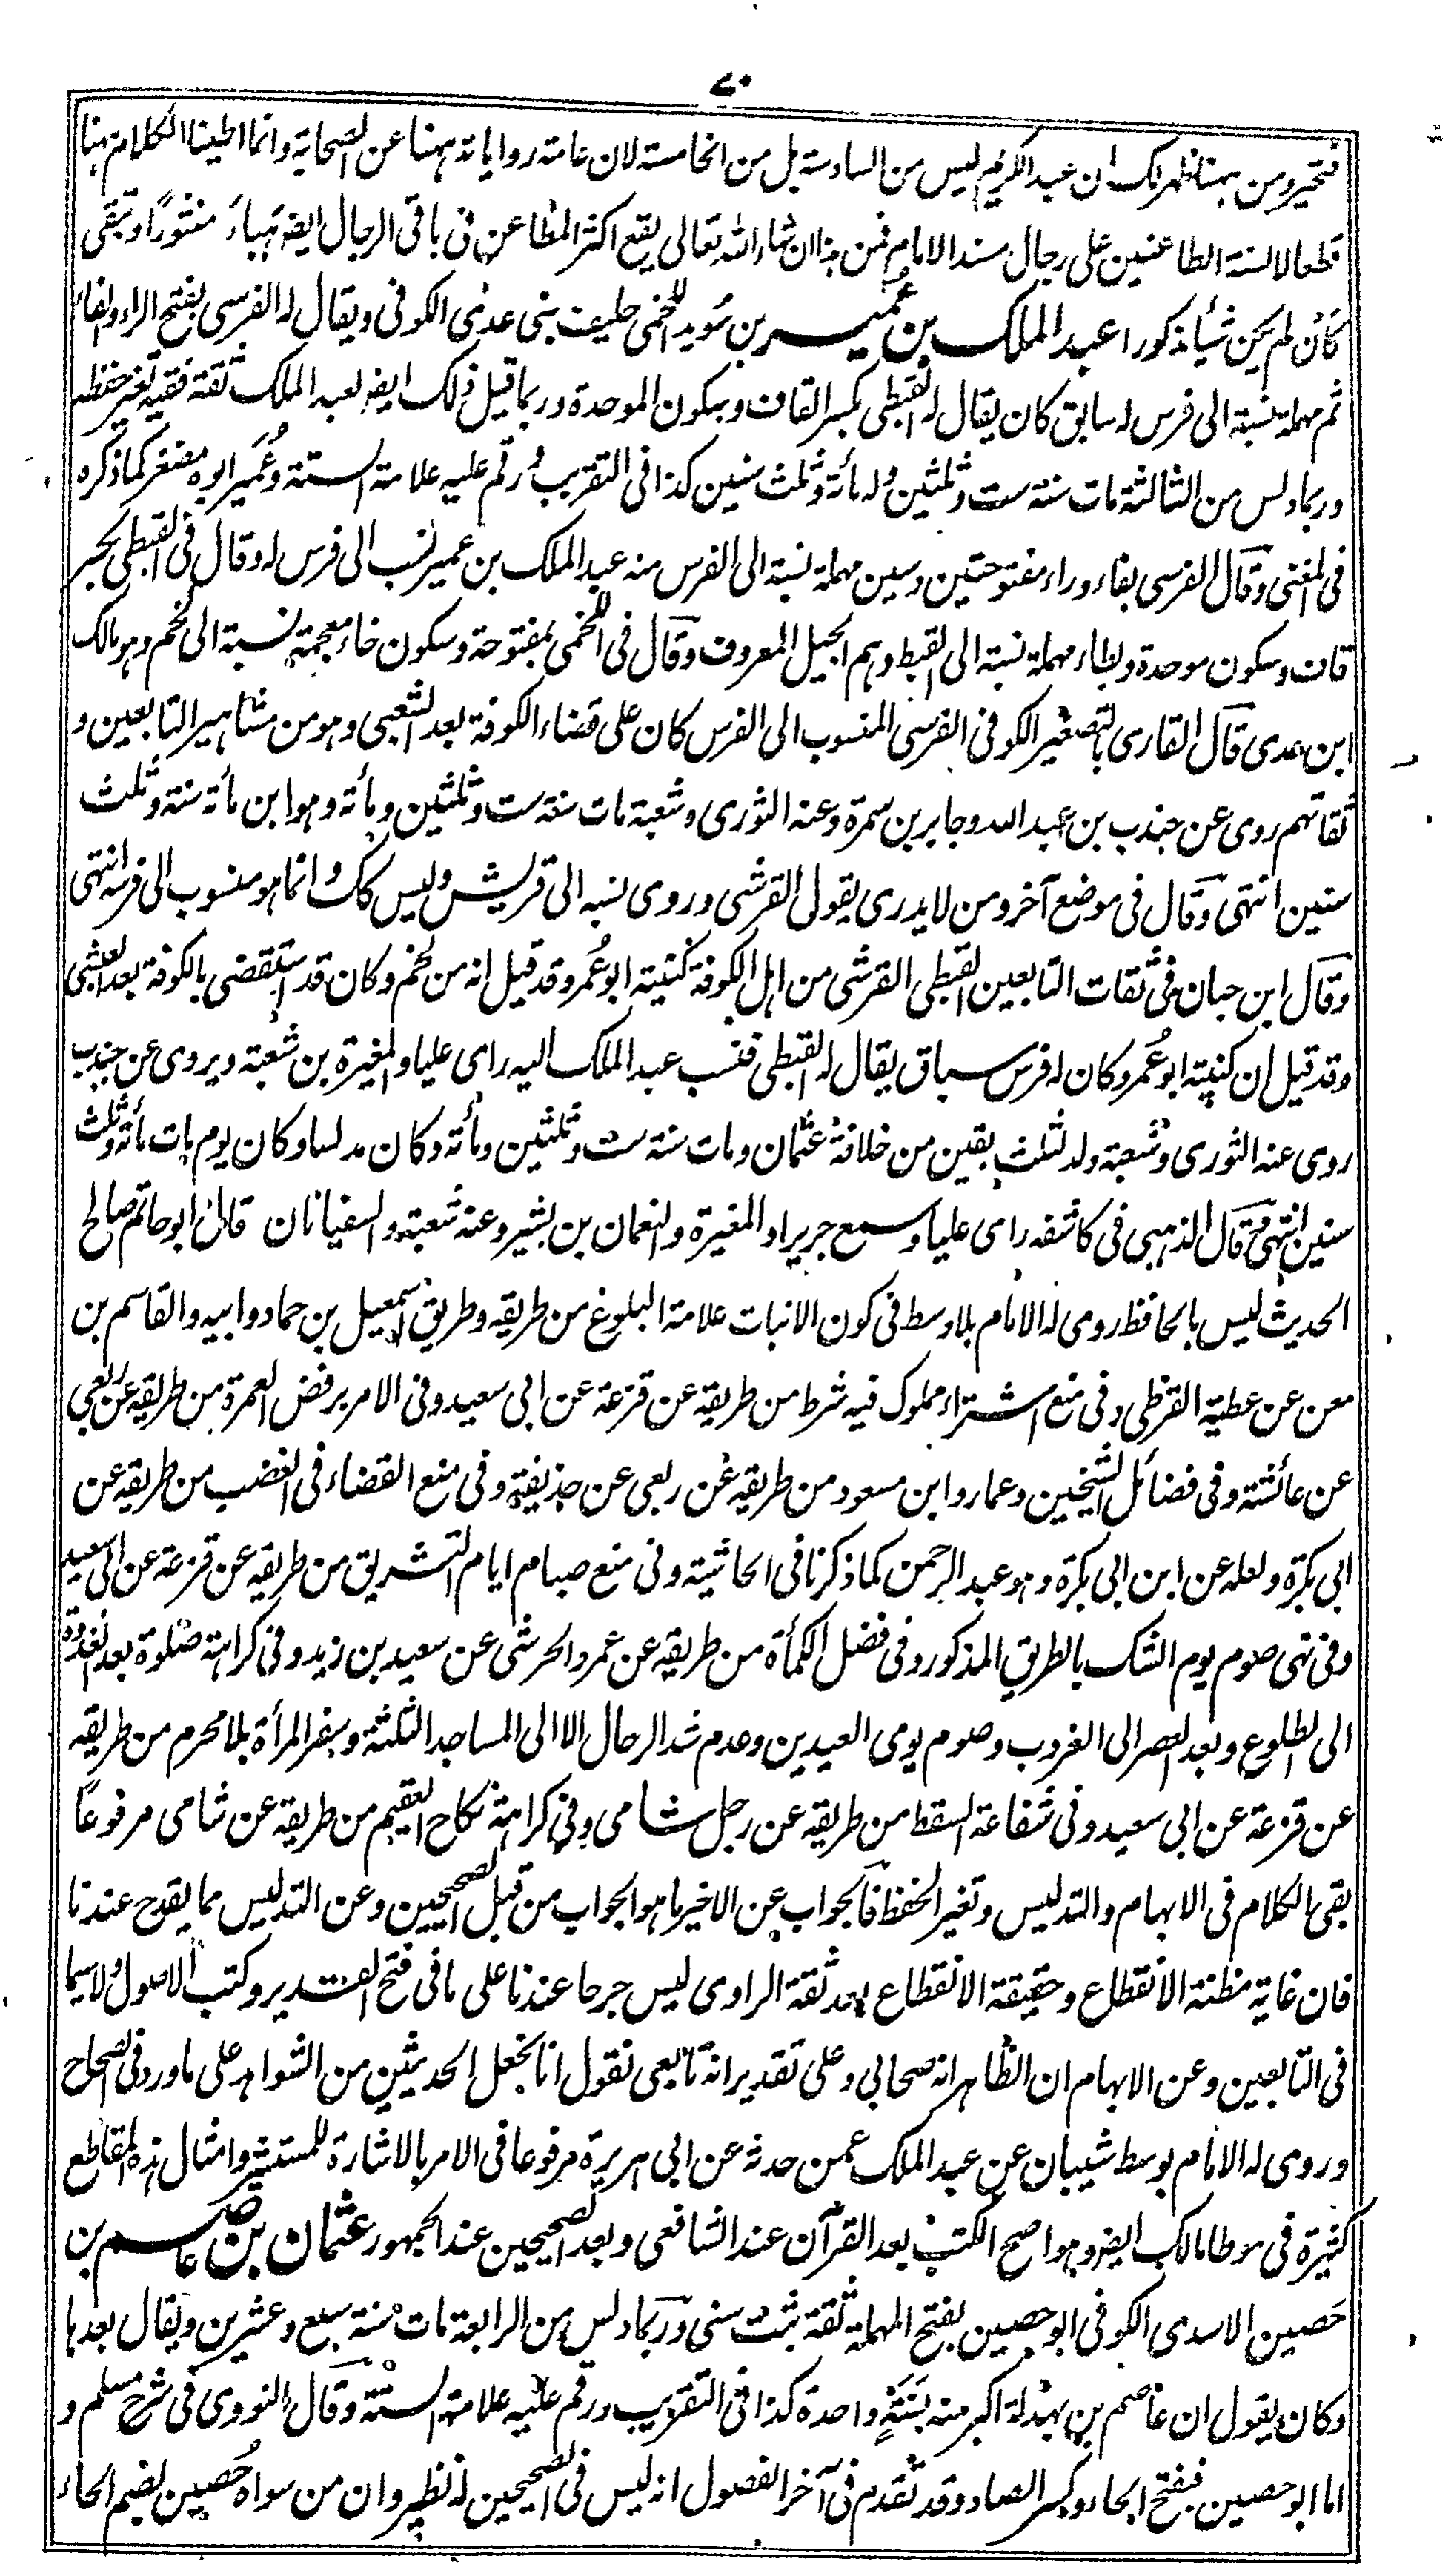 ٧٠
فتحير ومن ههنا ظهر لك ان عبد الكريم ليس من السادسة بل من الخامسة لان عامة رواياته ههنا عن الصحابة وانما اطلينا الكلام ههنا
قطعا لالسنة الطاعنين على رجال مسند الامام فمن هذا ان شاء الله تعالى يقع اكثر المطاعن فى باقى الرجال ايضا هَباءً منثورًا وتبقى
كأن لم يكن شيأ مذكورا عبد الملك بن عُمير بن سُويد اللخمى حليف بنى عدى الكوفى ويقال له الفرسى بفتح الراء والفاء
ثم مهملة نسبة الى فرس له سابق كان يقال له القبطى بكسر القاف وسكون الموحدة وربما قيل ذلك ايضا لعبد الملك ثقة فقيه تغير حفظه
وربما دلس من الثالثة مات سنة ست وثلثين وله مأة وثلث سنين كذا فى التقريب ورقم عليه علامة الستة وعُمَير ابوه مصغر كما ذكره
فى المغنى وقال الفرسى بفاء وراء مفتوحتين وسين مهملة نسبة الى الفرس منه عبد الملك بن عمير نسب الى فرس له وقال فى القبطى بكسر
قاف وسكون موحدة وبطاء مهملة نسبة الى القبط وهم الجيل المعروف وقال فى اللخمى بمفتوحة وسكون خاء معجمة نسبة الى لخم وهو مالك
ابن عدى قال القارى بالتصغير الكوفى الفرسى المنسوب الى الفرس كان على قضاء الكوفة بعد الشعبى وهو من مشاهير التابعين و
ثقاتهم روى عن جندب بن عبد الله وجابر بن سمرة وعنه الثورى وشعبة مات سنة ست وثلثين ومأة وهو ابن مأة سنة وثلث
سنين انتهى وقال فى موضع آخر ومن لا يدرى يقول القرشى وروى نسبه الى قريش وليس كك وانما هو منسوب الى فرسه انتهى
وقال ابن حبان فى ثقات التابعين القبطى القرشى من اهل الكوفة كنيته ابو عُمر وقد قيل انه من لخم وكان قد استقضى بالكوفة بعد الشعبى
وقد قيل ان كنيته ابو عُمرو كان له فرس سباق يقال له القبطى فنسب عبد الملك اليه راى عليا والمغيرة بن شعبة ويروى عن جندب
روى عنه الثورى وشعبة ولد لثلث بقين من خلافة عثمان ومات سنة ست وثلثين ومأة وكان مدلسا وكان يوم مات مأة وثلث
سنين انتهى وقال الذهبى فى كاشفه راى عليا وسمع جريرا والمغيرة والنعمان بن بشير وعنه شعبة والسفيانان قال ابو حاتم صالح
الحديث ليس بالحافظ روى له الامام بلا وسط فى كون الانبات علامة البلوغ من طريقه وطريق اسمعيل بن حماد وابيه والقاسم بن
معن عن عطية القرظى وفى منع اشتراء مملوك فيه شرط من طريقه عن قزعة عن ابى سعيد وفى الامر برفض العمرة من طريقه عن ربعى
عن عائشة وفى فضائل الشيخين وعمار وابن مسعود من طريقه عن ربعى عن حذيفة وفى منع القضاء فى الغضب من طريقه عن
ابى بكرة ولعله عن ابن ابى بكرة وهو عبد الرحمن كما ذكرنا فى الحاشية وفى منع صيام ايام التشريق من طريقه عن قزعة عن ابى سعيد
وفى نهى صوم يوم الشك بالطريق المذكور وفى فضل الكمأة من طريقه عن عمرو الحرشى عن سعيد بن زيد وفى كراهة صلوة بعد الغدوة
الى الطلوع وبعد العصر الى الغروب وصوم يومى العيدين وعدم شد الرحال الا الى المساجد الثلثة وسفر المرأة بلا محرم من طريقه
عن قزعة عن ابى سعيد وفى شفاعة السقط من طريقه عن رجل شامى وفى كراهة نكاح العقيم من طريقه عن شامى مرفوعًا
بقى الكلام فى الابهام والتدليس وتغير الحفظ فالجواب عن الاخير ما هو الجواب من قبل الصحيحين وعن التدليس مما يقدح عندنا
فان غاية مظنة الانقطاع وحقيقة الانقطاع بعد ثقة الراوى ليس جرحا عندنا على ما فى فتح القدير وكتب الاصول ولا سيما
فى التابعين وعن الابهام ان الظاهر انه صحابى وعلى تقدير انه تابعى نقول انا نجعل الحديثين من الشواهد على ما ورد فى الصحاح
وروى له الامام بوسط شيبان عن عبد الملك عمن حدثه عن ابى هريرة مرفوعا فى الامر بالاشارة للمستشير وامثال هذه المقاطع
كثيرة فى موطا مالك ايضا وهو اصح الكتب بعد القرآن عند الشافعى وبعد الصحيحين عند الجمهور عثمان بن عاصم بن
حَصين الاسدى الكوفى ابو حصين بفتح المهملة ثقة ثبت سنى وربما دلس من الرابعة مات سنة سبع وعشرين ويقال بعدها
وكان يقول ان عاصم بن بهدلة اكبر منه بسَنَةٍ واحدة كذا فى التقريب ورقم عليه علامة الستة وقال النووى فى شرح مسلم و
اما ابو حصين فبفتح الحاء وكسر الصاد وقد تقدم فى آخر الفصول انه ليس فى الصحيحين له نظير وان من سواه حُصين بضم الحاء